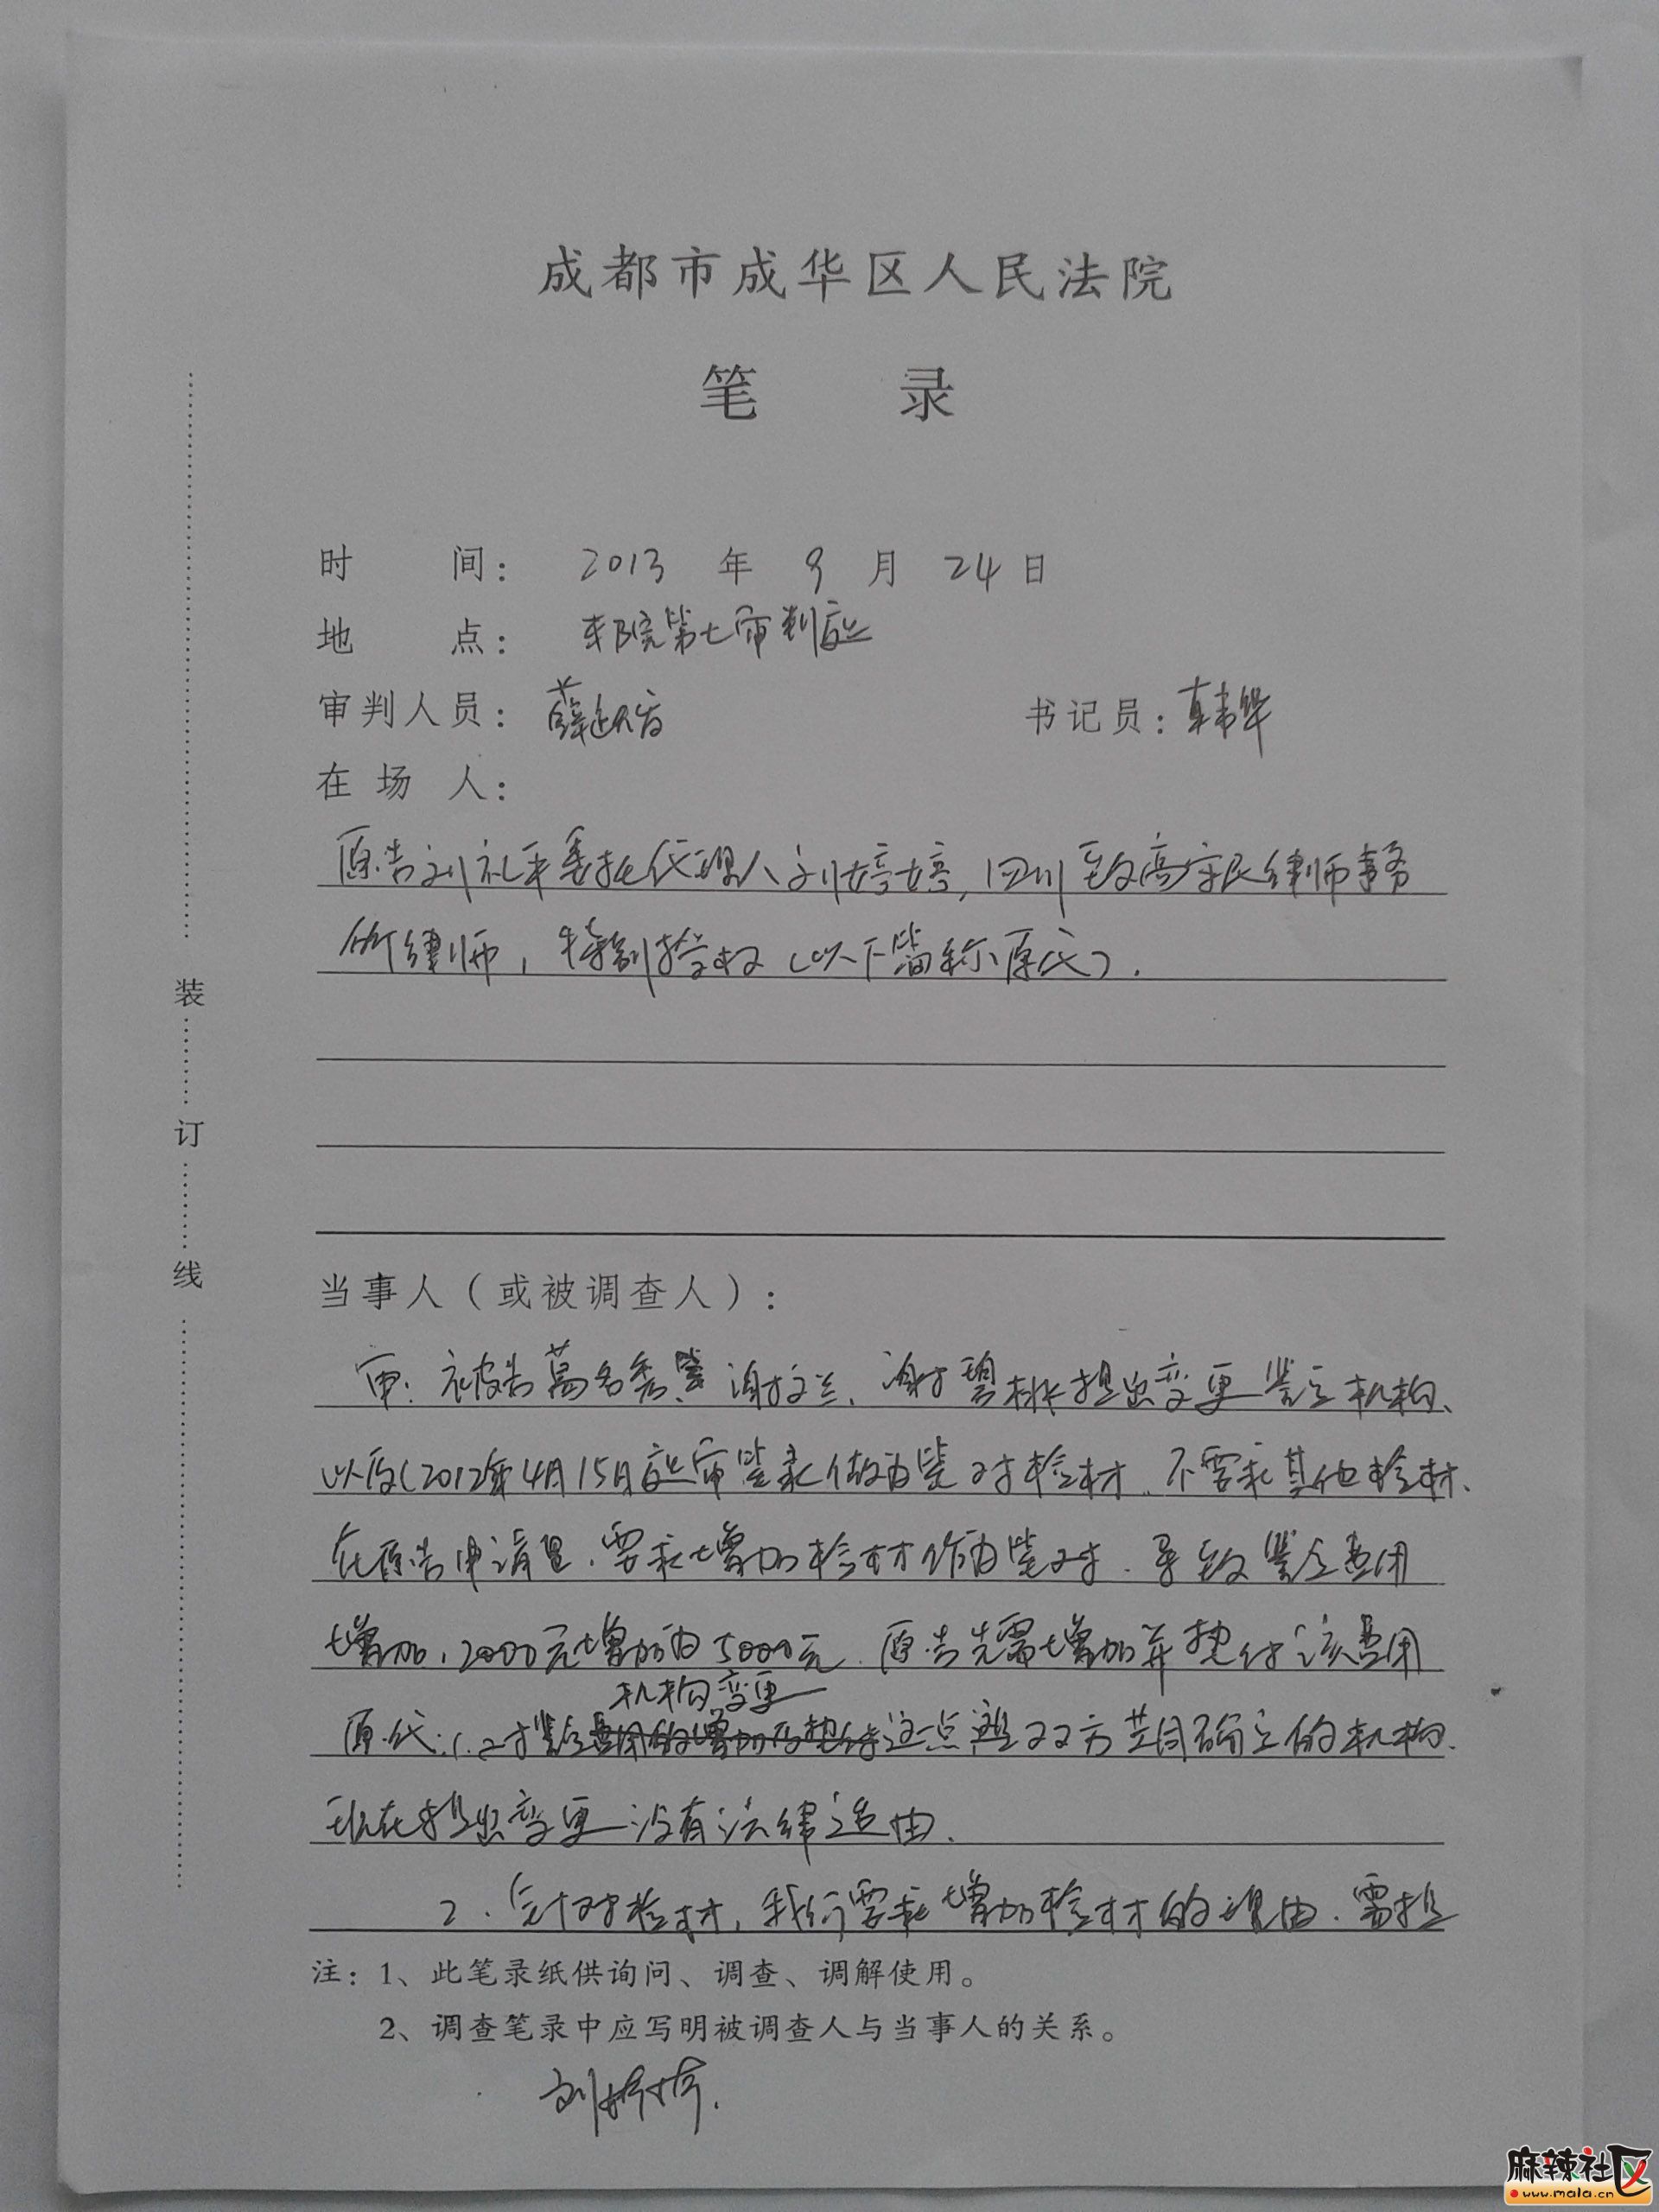 成都市成华区人民法院
笔 录
时 间： 2013 年 9 月 24 日
地 点： 本院第七审判庭
审判人员： 薛 书记员：
在 场 人：
原告刘礼平委托代理人刘婷婷，四川致高守民律师事务
所律师，特别授权（以下皆称原代）.
当事人（或被调查人）：
审：被告 谢文兰、谢碧 提出变更鉴定机构、
以及（2012年4月15日庭审笔录做为鉴对检材、不要求其他检材、
在原告申请里、要求增加检材作为鉴对、导致鉴定费用
增加，2000元增加为5000元、原告先需增加并垫付该费用
机构变更
原代：1.对鉴定这一点 是双方共同确定的机构、
现在提出变更没有法律 由、
2、针对检材，我们要求增加检材的理由、需提
注：1、此笔录纸供询问、调查、调解使用。
2、调查笔录中应写明被调查人与当事人的关系。
刘婷婷.
装
订
线
麻辣社区
www.mala.cn